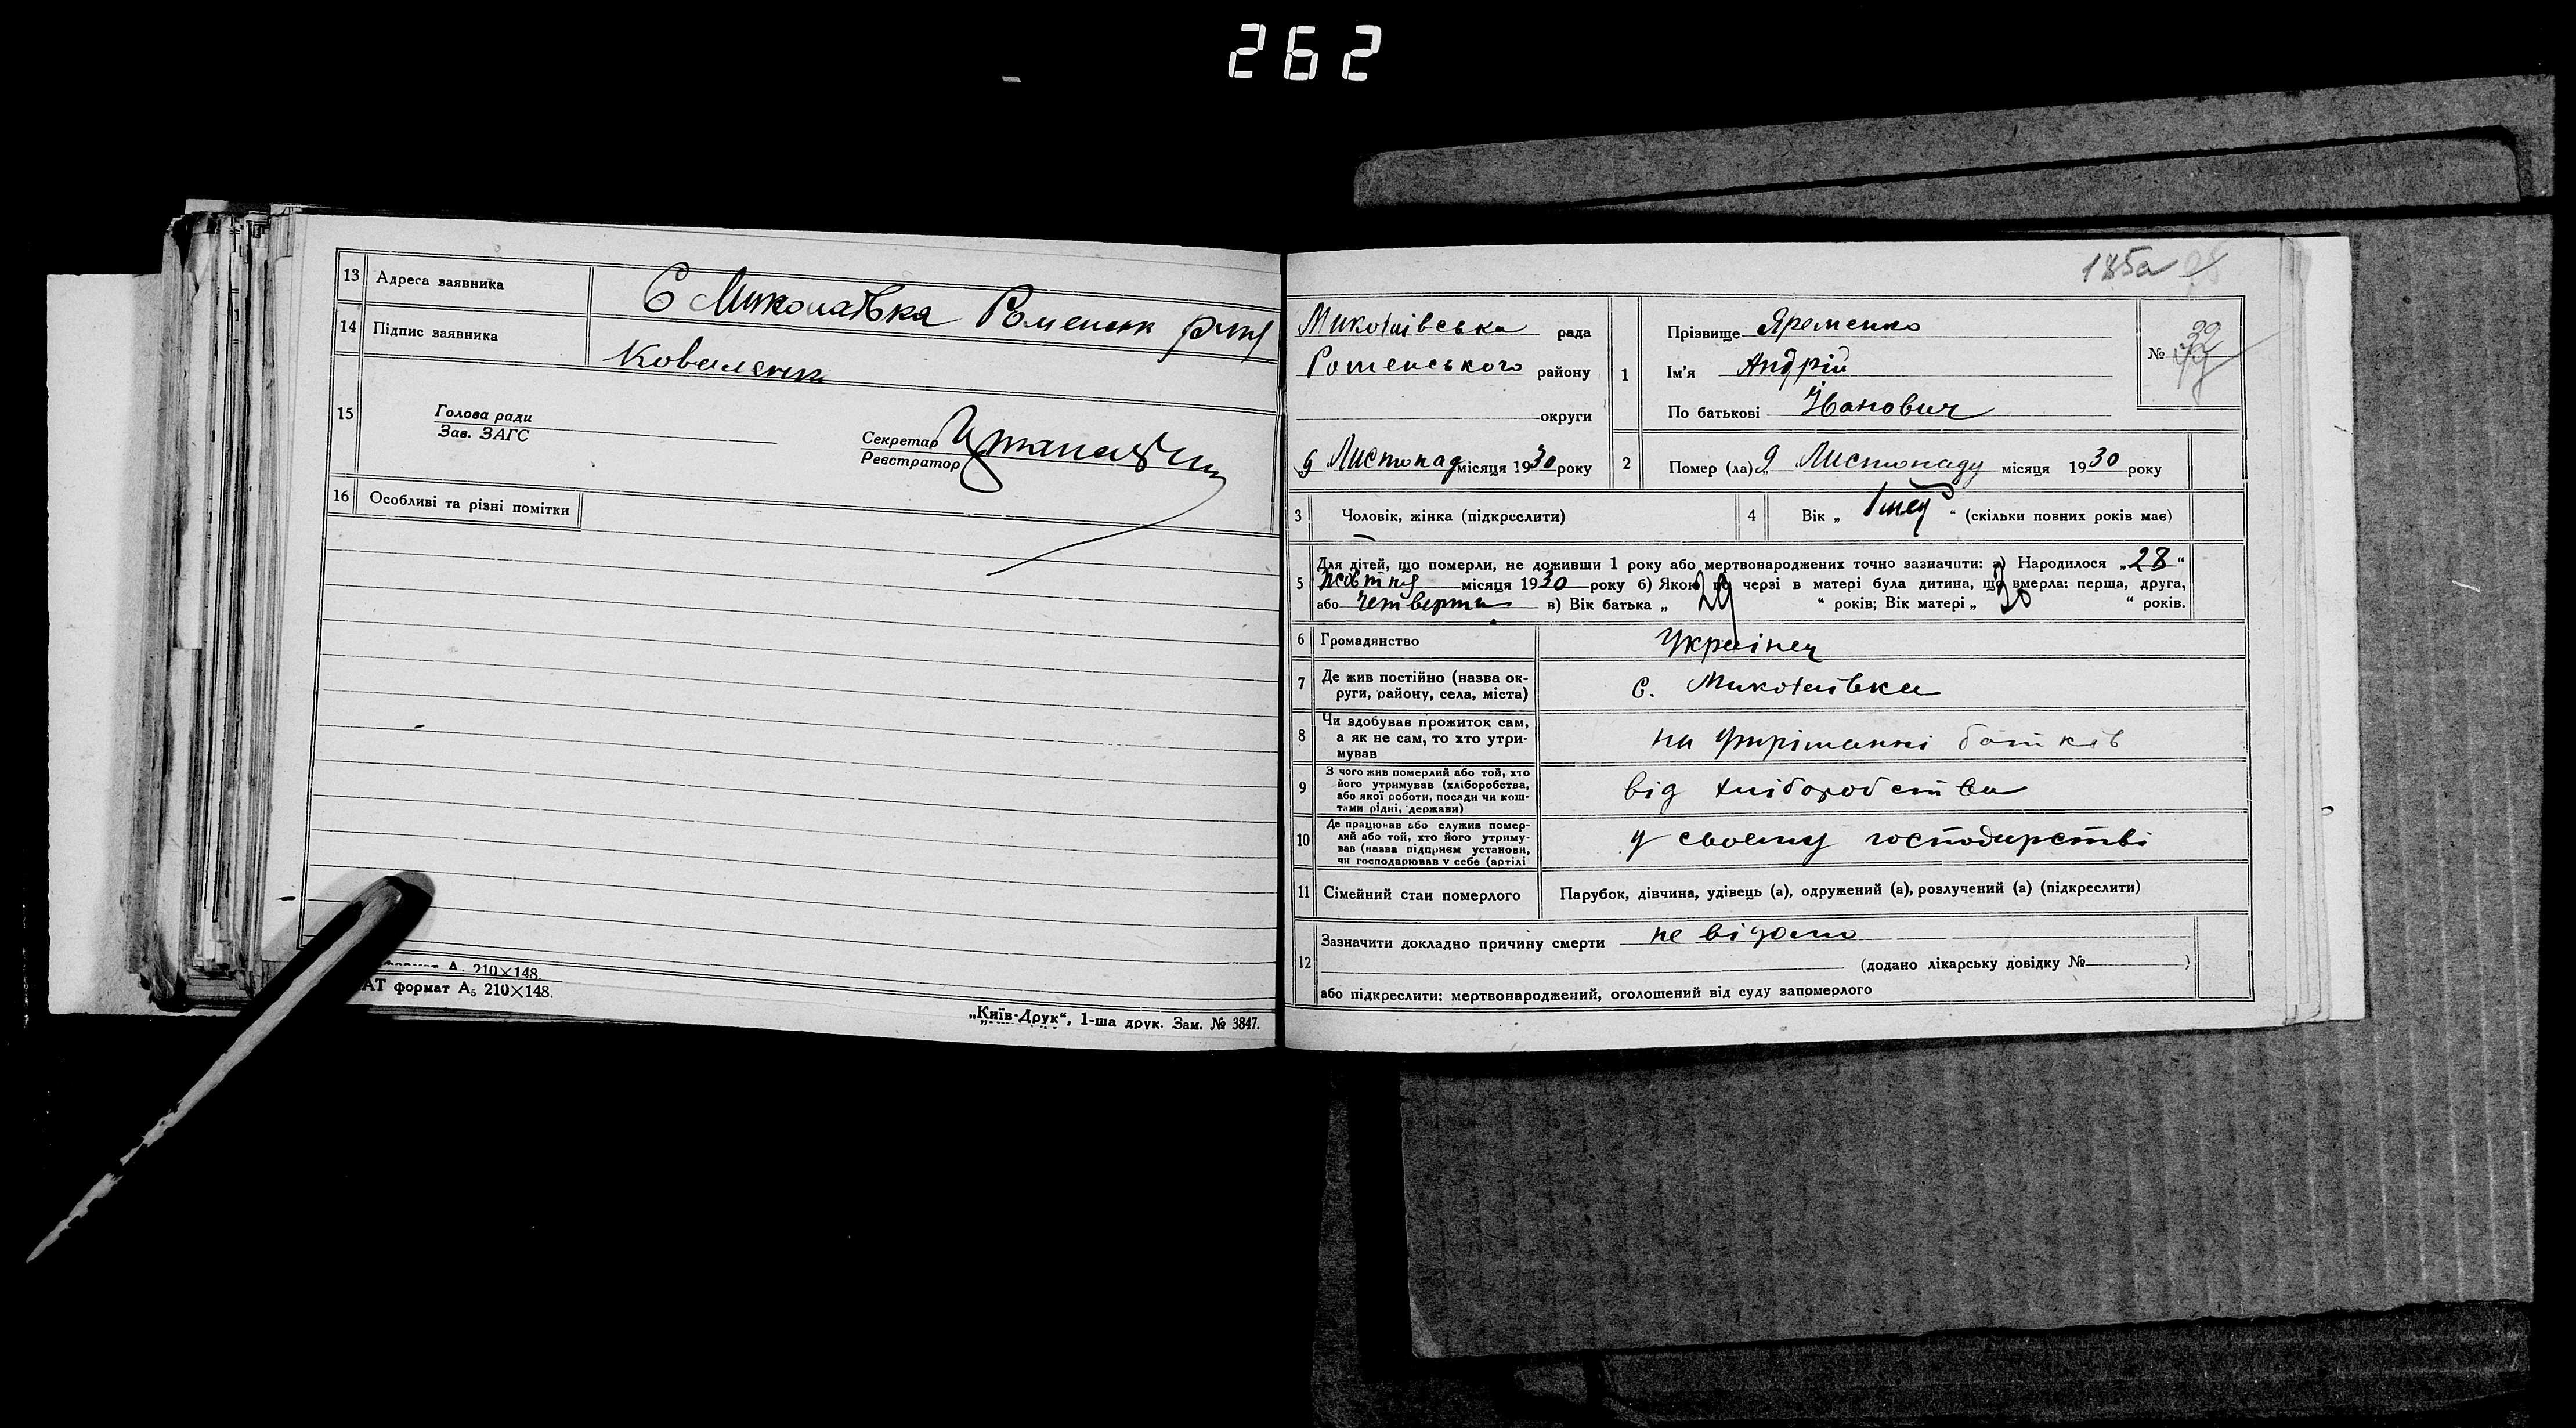 262
13 Адреса заявника С Миколаївка Роменськ р-ну
14 Підпис заявника Коваленко
15 Голова ради
Зав. ЗАГС
Секретар
Реєстратор
16 Особливі та різні помітки
формат А5 210×148.
АТ формат А5 210×148.
„Київ-Друк“, 1-ша друк. Зам. № 3847.
185а
Миколаївська рада
Роменського району
округи
9 Листопад місяця 1930 року
1 Прізвище Яременко
Ім'я Андрій
По батькові Іванович
№ 32
2 Помер (ла) 9 Листопаду місяця 1930 року
3 Чоловік, жінка (підкреслити)
4 Вік „ 1 мец “ (скільки повних років має)
5 Для дітей, що померли, не доживши 1 року або мертвонароджених точно зазначити: а) Народилося „28“
жовтня місяця 1930 року б) Якою по черзі в матері була дитина, що вмерла: перша, друга,
або четверта в) Вік батька „ 29 “ років; Вік матері „ 30 “ років.
6 Громадянство Українец
7 Де жив постійно (назва ок-
руги, району, села, міста) с. Миколаівка
8 Чи здобував прожиток сам,
а як не сам, то хто утри-
мував на утріманні батьків
9 З чого жив померлий або той, хто
його утримував (хліборобства,
або якої роботи, посади чи кош-
тами рідні, держави) від хліборобства
10 Де працював або служив помер-
лий або той, хто його утриму-
вав (назва підприєм установи,
чи господарював у себе (артілі у своему господарстві
11 Сімейний стан померлого Парубок, дівчина, удівець (а), одружений (а), розлучений (а) (підкреслити)
12 Зазначити докладно причину смерти не відомо
(додано лікарську довідку № )
або підкреслити: мертвонароджений, оголошений від суду запомерлого